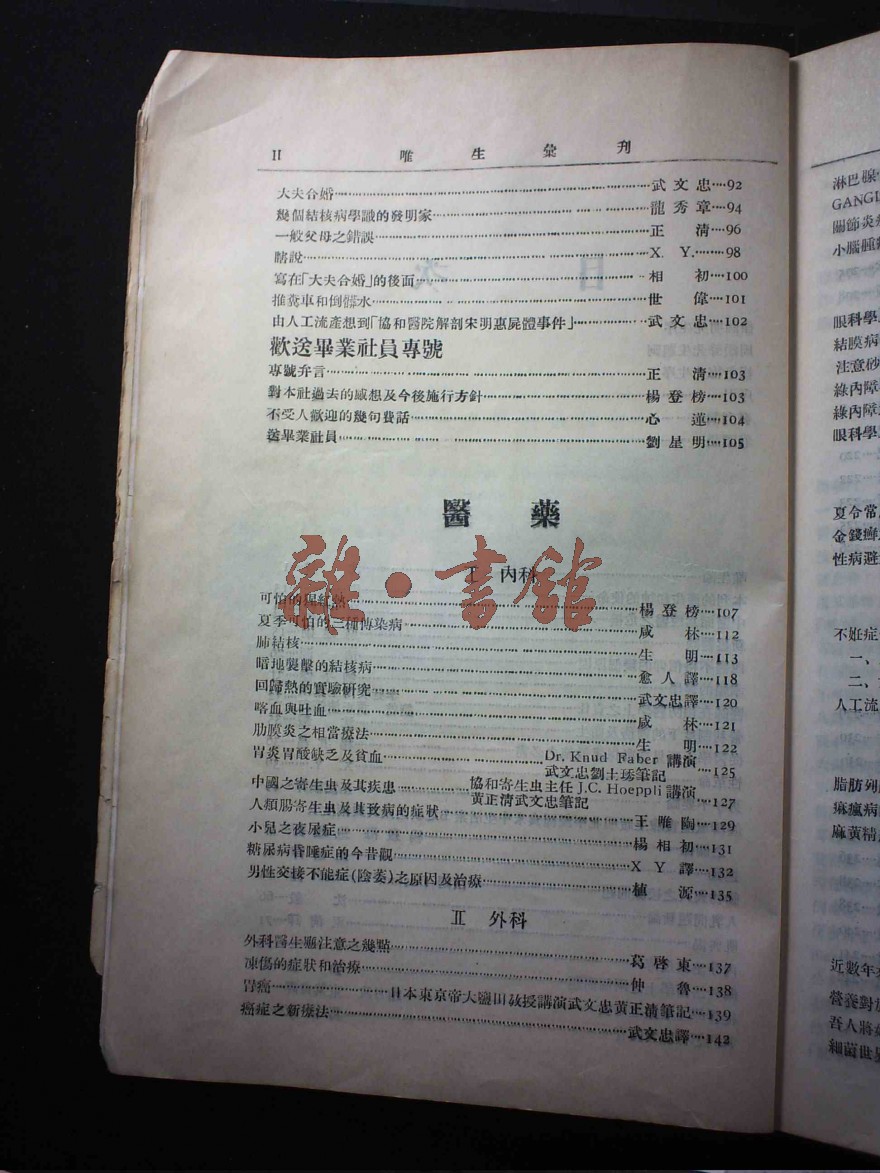 II 唯生彙刊
大夫合婚 武文忠 92
幾個結核病學識的發明家 龍秀章 94
一般父母之錯誤 正清 96
瞎說 X. Y. 98
寫在「大夫合婚」的後面 相初 100
推糞車和倒髒水 世偉 101
由人工流產想到「協和醫院解剖宋明惠屍體事件」 武文忠 102
歡送畢業社員專號
專號弁言 正清 103
對本社過去的感想及今後施行方針 楊登榜 103
不受人歡迎的幾句費話 心蓮 104
送畢業社員 劉星明 105
醫藥
I 內科
可怕的猩紅熱 楊登榜 107
夏季可怕的三種傳染病 咸林 112
肺結核 生明 113
暗地襲擊的結核病 愈人譯 118
回歸熱的實驗研究 武文忠譯 120
喀血與吐血 咸林 121
肋膜炎之相當療法 生明 122
胃炎胃酸缺乏及貧血 Dr. Knud Faber 講演
武文忠劉士琇筆記 125
中國之寄生虫及其疾患 協和寄生虫主任 J.C. Hoeppli 講演
黃正清武文忠筆記 127
人類腸寄生虫及其致病的症狀 王唯陶 129
小兒之夜尿症 楊相初 131
糖尿病昏睡症的今昔觀 X Y 譯 132
男性交接不能症(陰萎)之原因及治療 植源 135
II 外科
外科醫生應注意之幾點 葛啓東 137
凍傷的症狀和治療 仲魯 138
胃癌 日本東京帝大鹽田敎授講演武文忠黃正清筆記 139
癌症之新療法 武文忠譯 142
淋巴腺
GANGL
關節炎
小腦腫
眼科學
結膜病
注意砂
綠內障
綠內障
眼科學
夏令常
金錢癬
性病避
不姙症
一、
二、
人工流
脂肪列
痳瘋病
麻黃精
近數年
營養對
吾人將
細菌世界
雜·書館